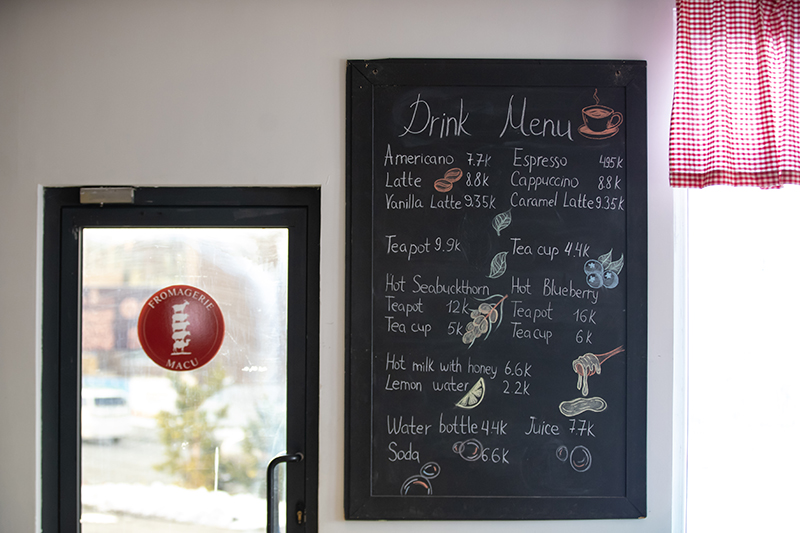 Drink Menu
Americano 7.7k Espresso 4.95k
Latte 8.8k Cappuccino 8.8k
Vanilla Latte 9.35k Caramel Latte 9.35k
Teapot 9.9k Tea cup 4.4k
Hot Seabuckthorn Hot Blueberry
Teapot 12k Teapot 16k
Tea cup 5k Tea cup 6k
Hot milk with honey 6.6k
Lemon water 2.2k
Water bottle 4.4k Juice 7.7k
Soda 6.6k
FROMAGERIE
MACU